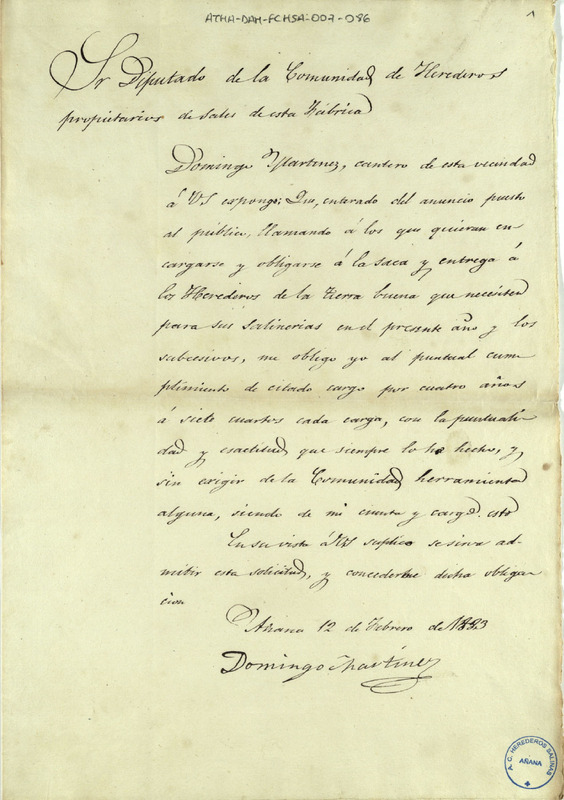 ATHA-DAH-FCHSA-007-086
1
Sr Diputado de la Comunidad de Herederos
propietarios de sales de esta Fábrica
Domingo Martinez, cantero de esta vecindad
á VS expongo; Que, enterado del anuncio puesto
al público, llamando á los que quieran en
cargarse y obligarse á la saca y entrega á
los Herederos de la tierra buena que necesiten
para sus salinerias en el presente año y los
subcesivos, me obligo yo al puntual cum
plimiento de citado cargo por cuatro años
á siete cuartos cada carga, con la puntuali
dad y esactitud que siempre lo he hecho, y
sin exigir de la Comunidad herramienta
alguna, siendo de mi cuenta y cargo esto
En su vista á VS suplico se sirva ad-
mitir esta solicitud, y concederme dicha obliga
cion
Añana 12 de Febrero de
Domingo Martinez
A. C. HEREDEROS SALINAS
AÑANA